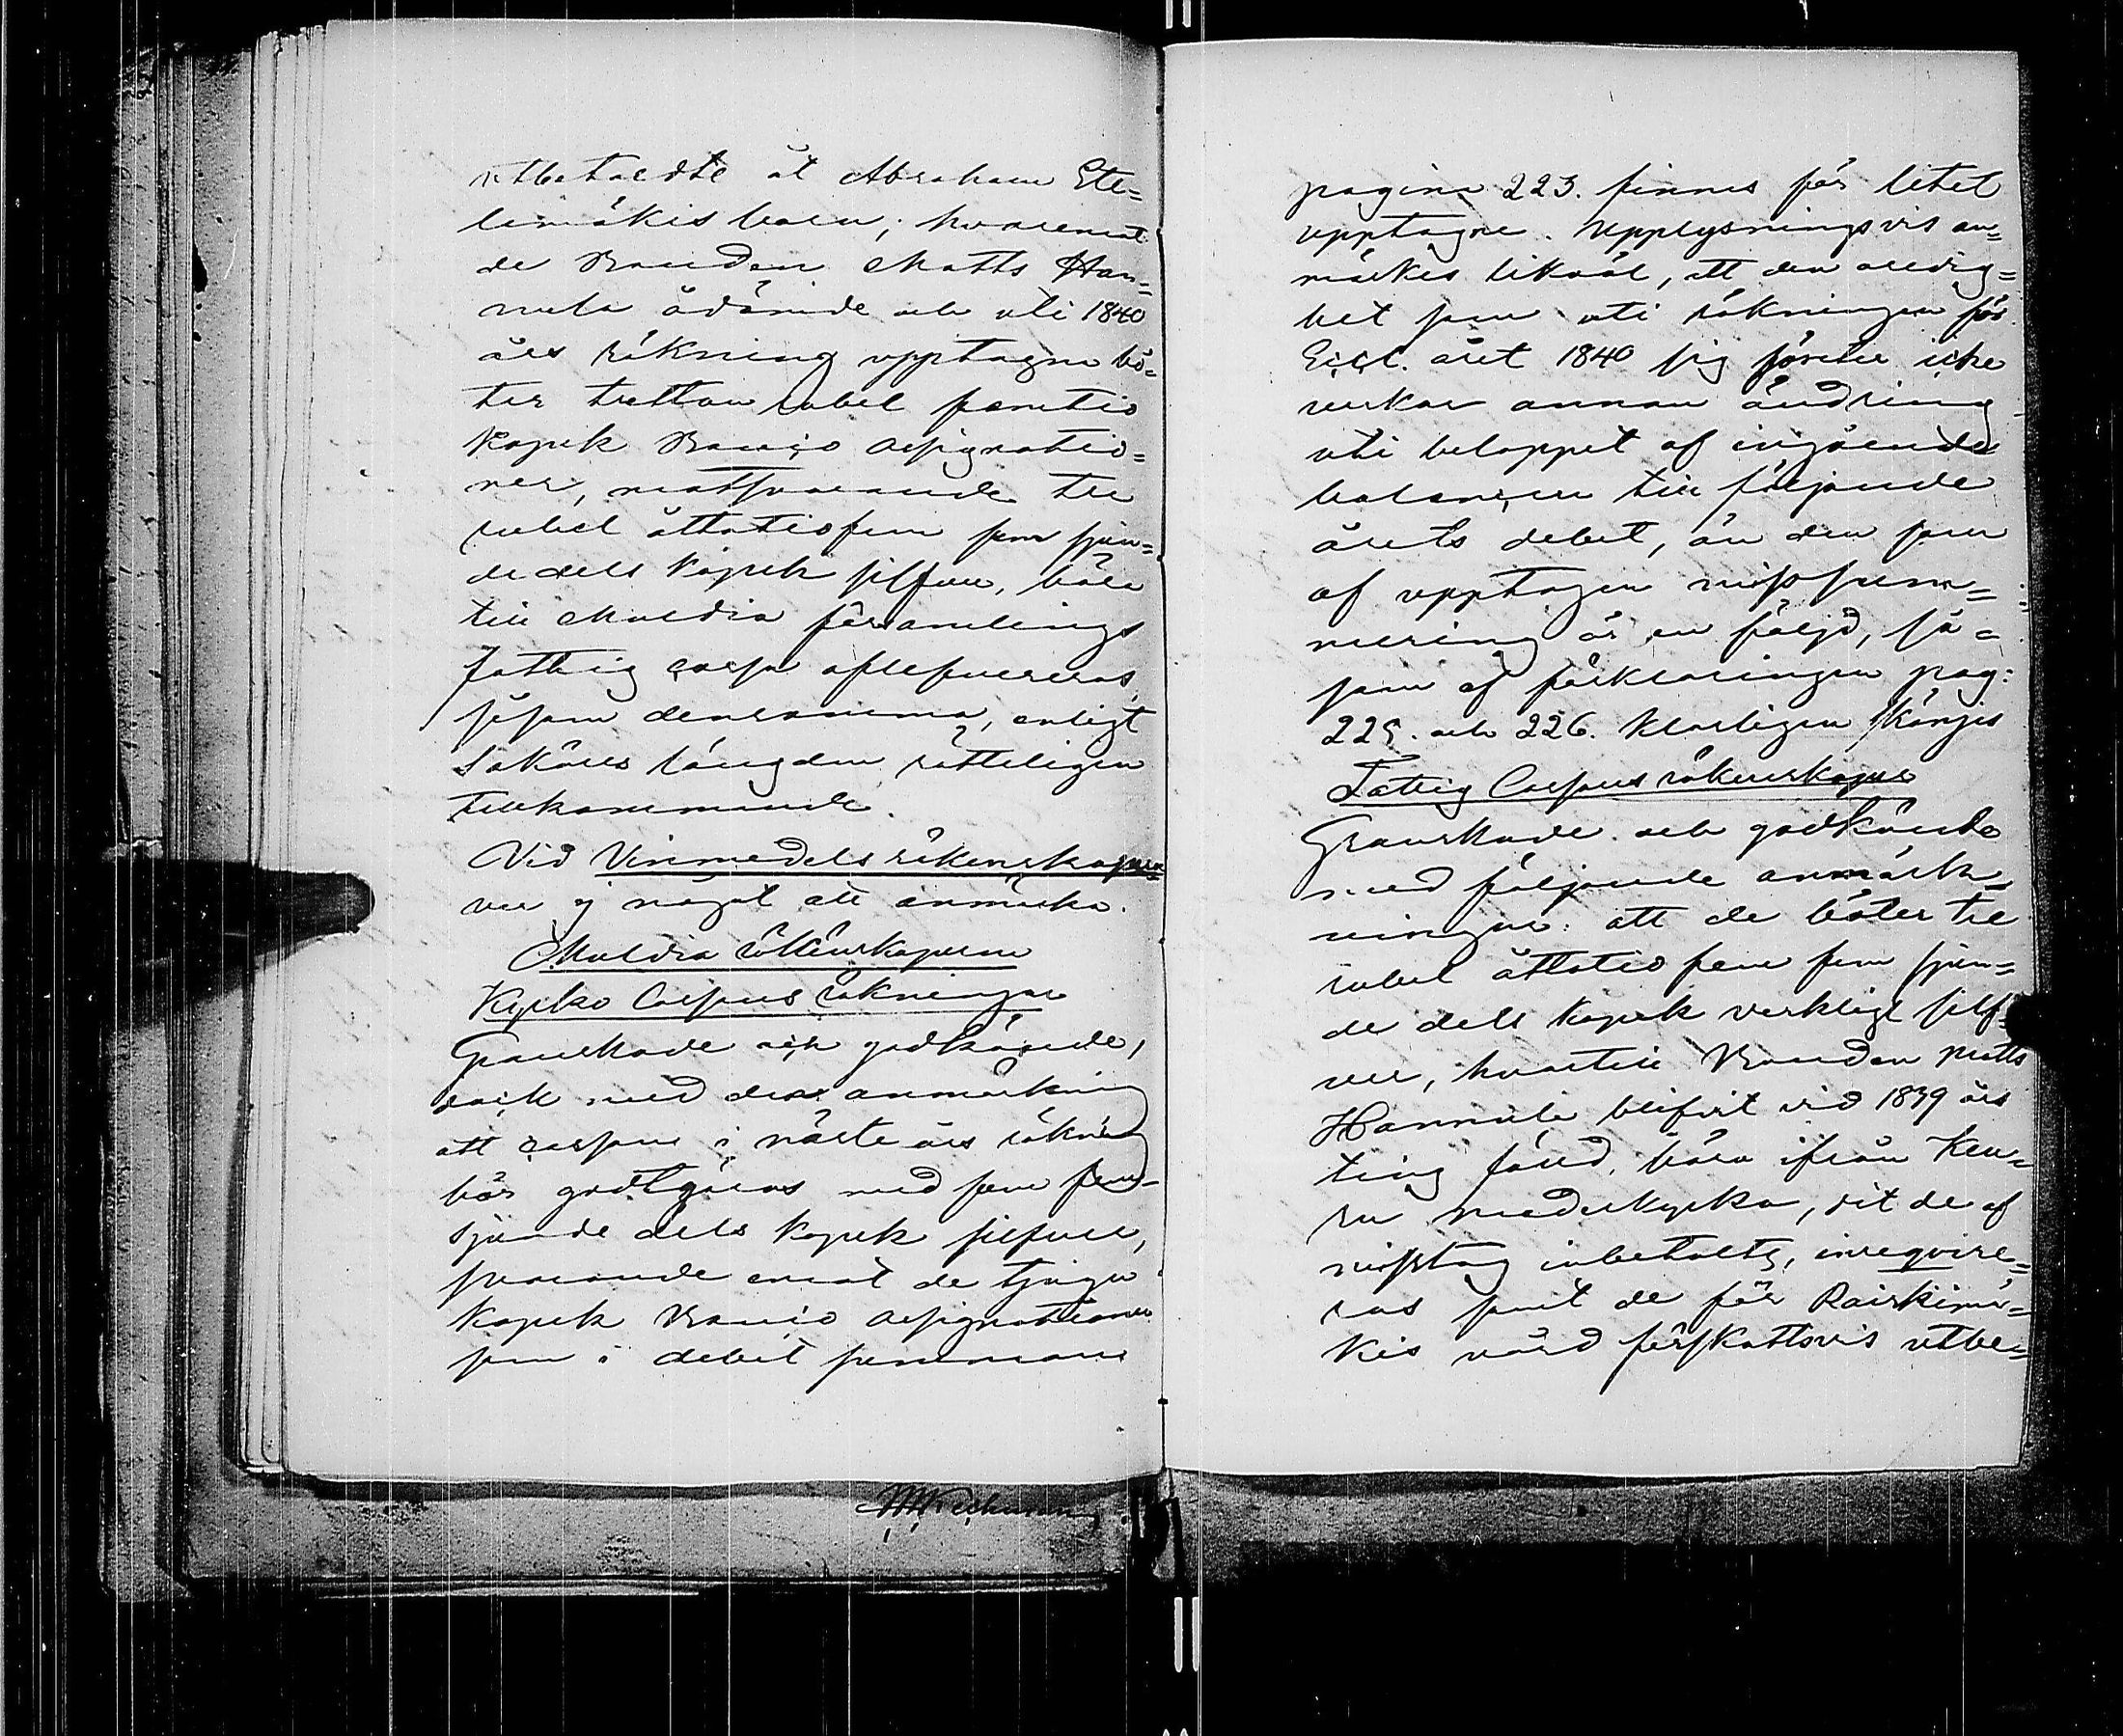 utbetaldte åt Abraham Ete-
lämäkis barn; hvaremot
de Bonden Matts Han-
nula ådömde och uti 1840
års räkning upptagne bö-
ter tretton rubel femtio
kopek Banco assignatio-
ner, motsvarande tre
rubel åttatiofem fem sjun-
de dels kopek silfver, böra
till Muldia församlings
fattig cassa aflefvereras,
såsom densamma, enligt
Saköres längden rätteligen
tillkommande.
Vid Vinmedels räkenskaperne
var ej något att anmärka.
Muldia räkenskaperne
Kyrko Cassans räkningar
Granskade och godkände,
dock med den anmärkning
att cassan i nästa års räkning
bör godtgöras med fem fem
sjunde dels kopek silfver,
svarande emot de tjugu
kopek Banco assignationer
som i debet summan
MWechman
pagina 223. finnes för litet
upptagne. Upplysningsvis an-
märkes likväl, att den oredig-
het som uti räkningen för
Eccl. året 1840 sig företer icke
verkar annan ändring
uti beloppet af ingående
balancen till följande
årets debet, än den som
af upptagen missum-
mering är en följd, så-
som af förklaringen pag:
225. och 226. klarligen skönjes
Fattig Cassans räkenskaper
Granskade och godkände
med följande anmärk-
ningar: att de böter tre
rubel åttatio fem fem sjun-
de dels kopek verkligt silf-
ver, hvartill Bonden Matts
Hannula blifvit vid 1839 års
ting fälld, böra ifrån Keu-
ru moderkyrka, dit de af
misstag inbetalts, inreqvire-
ras samt de för Raiskimä-
kis vård förskottsvis utbe-